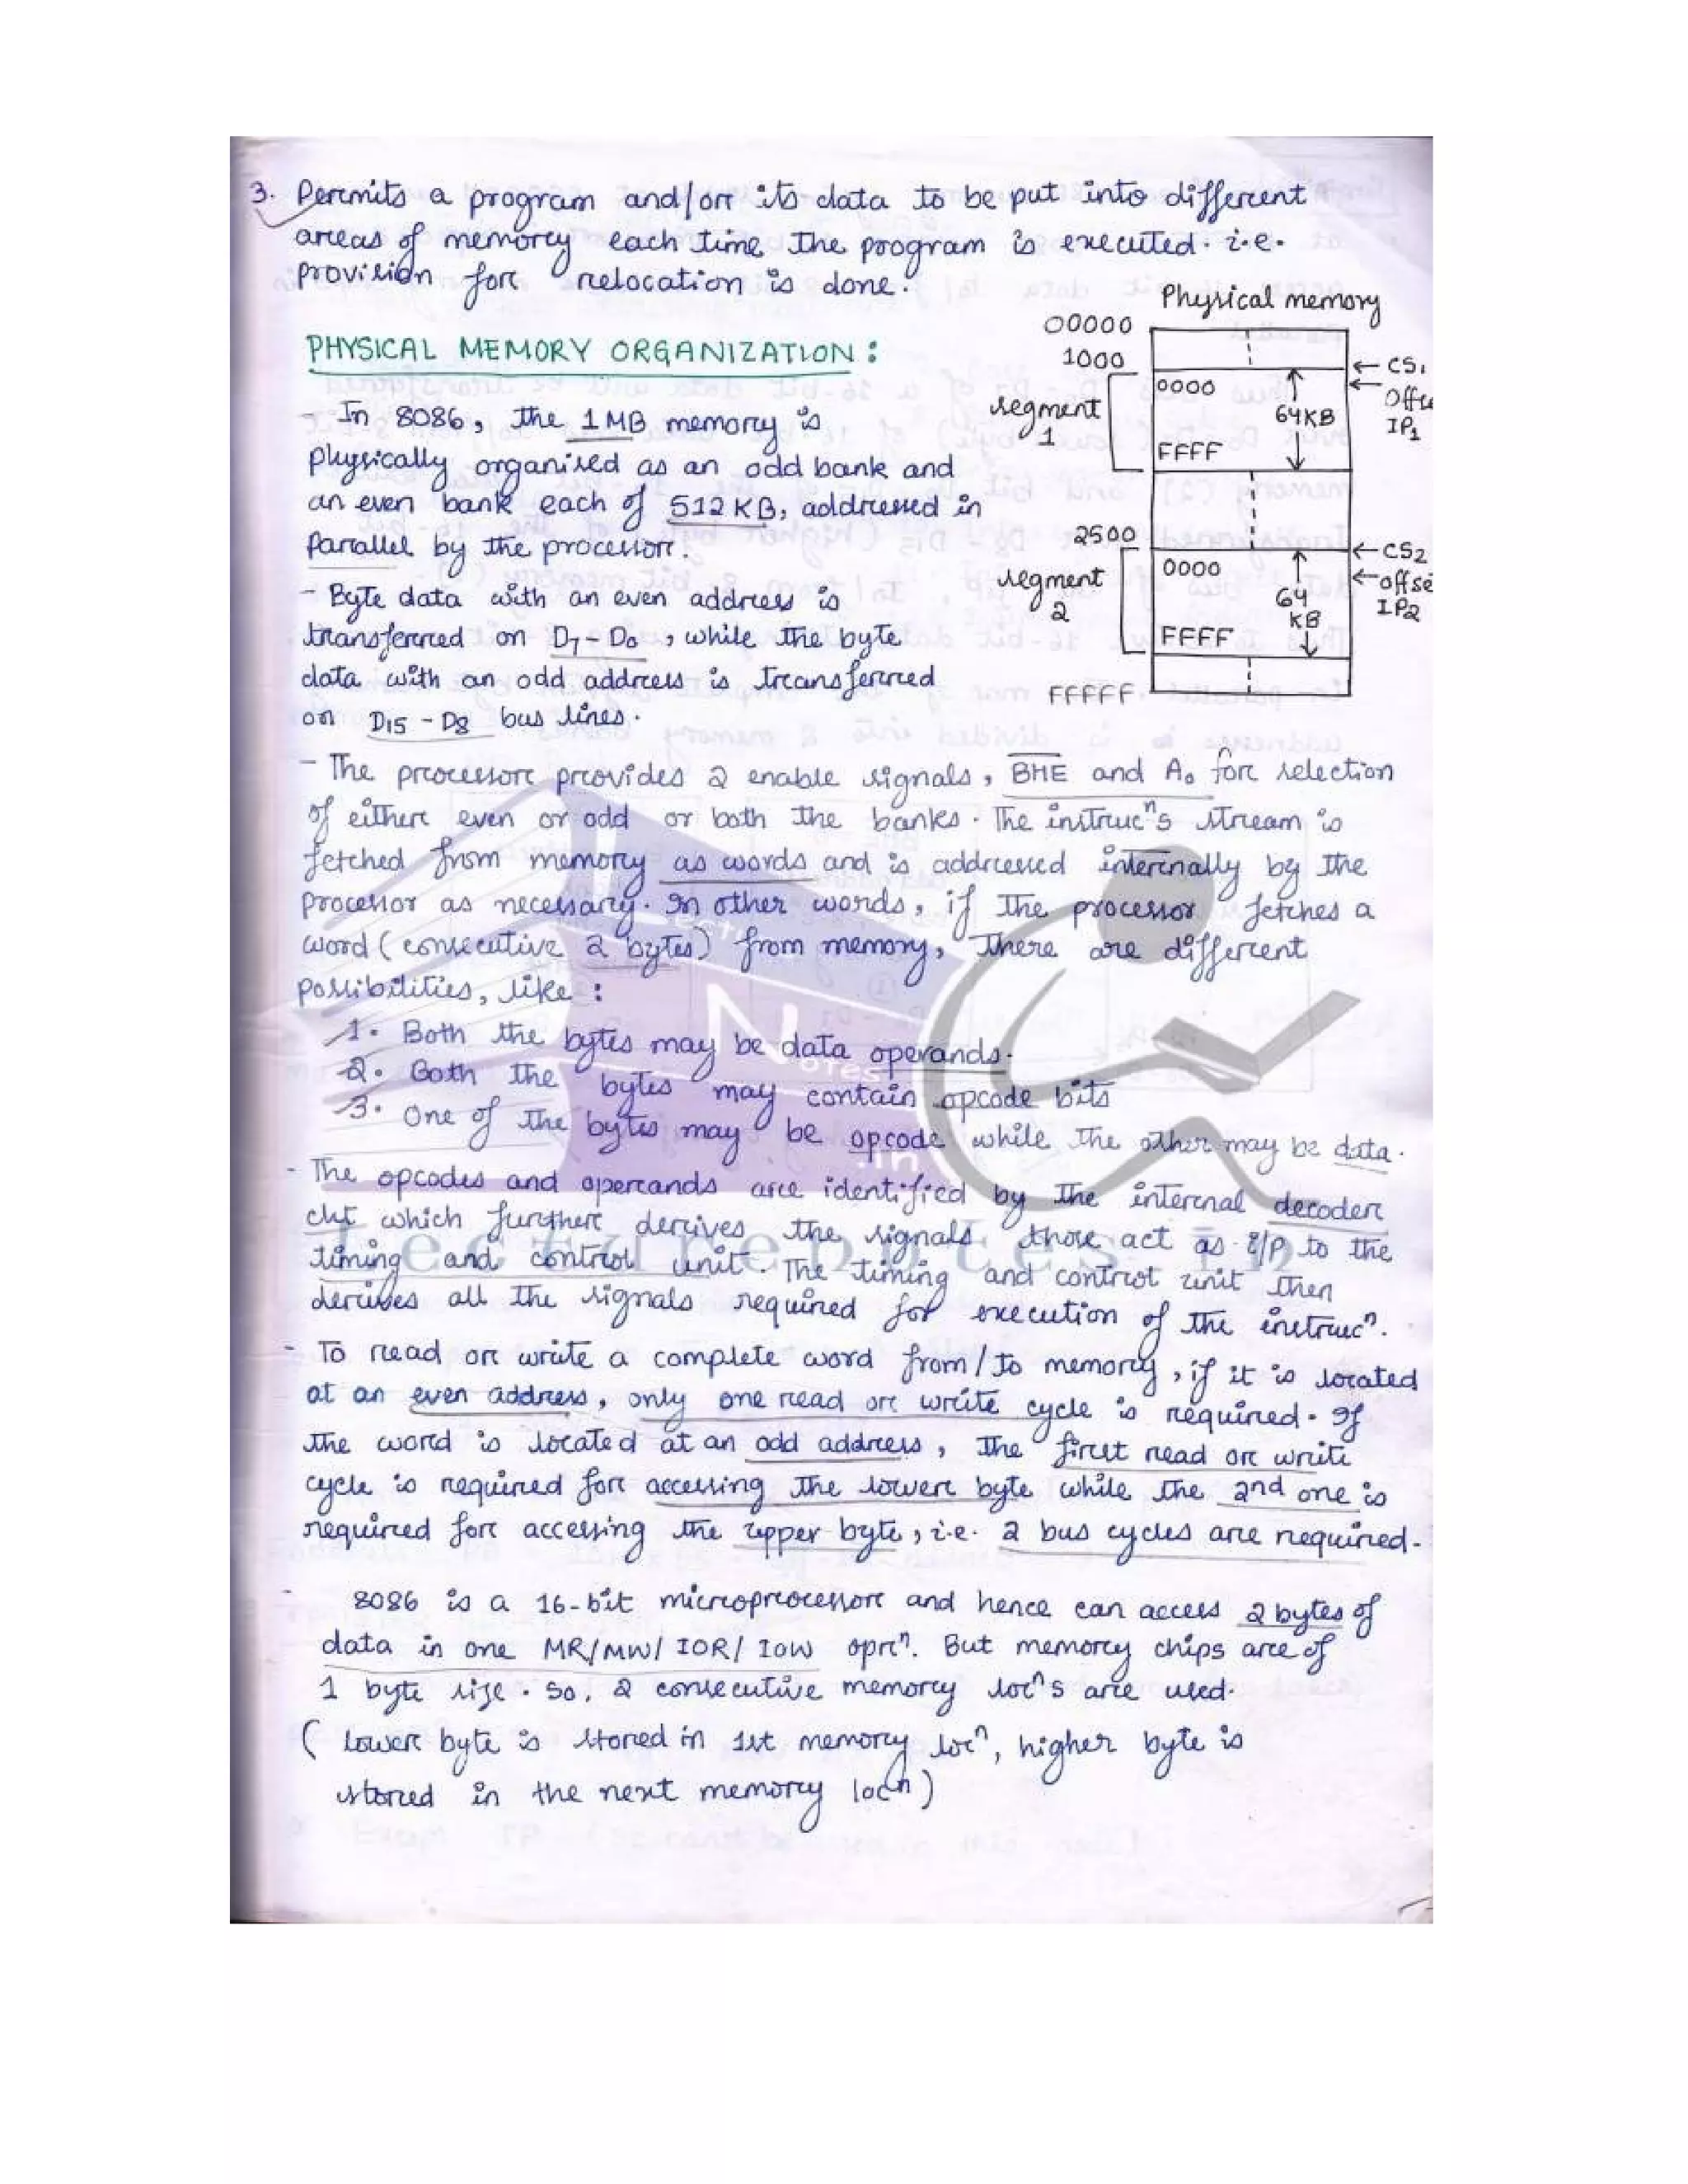 3. Permits a program and/or its data to be put into different
areas of memory each time the program is executed. i.e.
provision for relocation is done.
PHYSICAL MEMORY ORGANIZATION :
- In 8086, the 1MB memory is
physically organised as an odd bank and
an even bank each of 512 KB, addressed in
parallel by the processor.
- Byte data with an even address is
transferred on D7 - D0, while the byte
data with an odd address is transferred
on D15 - D8 bus lines.
Physical memory
00000
1000
segment
1
0000
FFFF
64KB
← CS1
←
IP1
2500
segment
2
0000
FFFF
64
KB
← CS2
← offse
IP2
FFFFF
- The processor provides 2 enable signals, B̅H̅E̅ and A0 for selection
of either even or odd or both the banks. The instrucⁿs stream is
fetched from memory as words and is addressed internally by the
processor as necessary. In other words, if the processor fetches a
word (consecutive 2 bytes) from memory, there are different
possibilities, like :
1. Both the bytes may be data operands.
2. Both the bytes may contain opcode bits
3. One of the bytes may be opcode while the other may be data.
- The opcodes and operands are identified by the internal decoder
ckt which further derives the signals those act as i/p to the
timing and control unit. The timing and control unit then
derives all the signals required for execution of the instrucⁿ.
- To read or write a complete word from/to memory, if it is located
at an even address, only one read or write cycle is required. If
the word is located at an odd address, the first read or write
cycle is required for accessing the lower byte while the 2nd one is
required for accessing the upper byte, i.e. 2 bus cycles are required.
- 8086 is a 16-bit microprocessor and hence can access 2 bytes of
data in one MR/MW/IOR/IOW oprⁿ. But memory chips are of
1 byte size. So, 2 consecutive memory locⁿs are used.
( Lower byte is stored in 1st memory locⁿ, higher byte is
stored in the next memory locⁿ)
Notes
.in
Lecturenotes.in